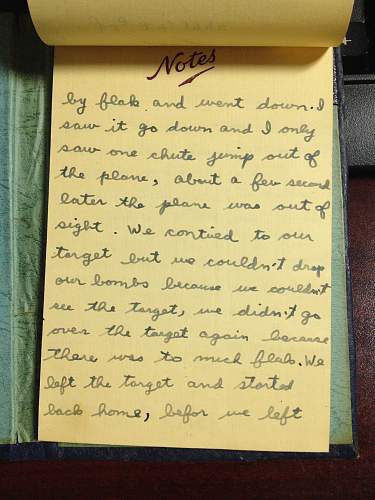 Notes
by flak and went down. I
saw it go down and I only
saw one chute jump out of
the plane, about a few second
later the plane was out of
sight. We contied to our
target but we couldn't drop
our bombs because we couldn't
see the target, we didn't go
over the target again because
there was to much flak. We
left the target and started
back home, befor we left